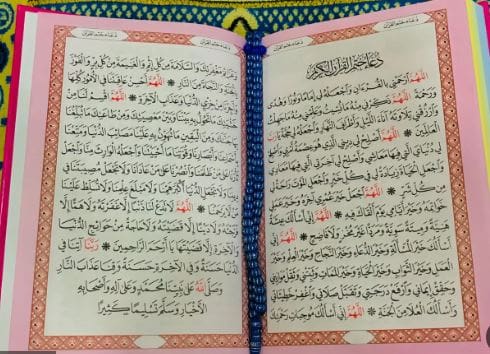 دعاء ختم القرآن
دعاء ختم القرآن
دعاء ختم القرآن الكريم
اللهم ارحمني بالقرءان واجعله لي إماما ونورا وهدى
ورحمة * اللهم ذكرني منه ما نسيت وعلمني منه ما جهلت
وارزقني تلاوته آناء الليل وأطراف النهار واجعله لي حجة يا رب
العالمين * اللهم أصلح لي ديني الذي هو عصمة أمري وأصلح
لي دنياي التي فيها معاشي وأصلح لي آخرتي التي فيها معادي
واجعل الحياة زيادة لي في كل خير واجعل الموت راحة لي
من كل شر * اللهم اجعل خير عمري آخره وخير عملي
خواتمه وخير أيامي يوم ألقاك فيه * اللهم إني أسألك عيشة
هنية وميتة سوية ومردا غير مخز ولا فاضح * اللهم إني
أسألك خير المسألة وخير الدعاء وخير النجاح وخير العلم وخير
العمل وخير الثواب وخير الحياة وخير الممات وثبتني وثقل موازيني
وحقق إيماني وارفع درجتي وتقبل صلاتي واغفر خطيئاتي
وأسألك العلا من الجنة * اللهم إني أسألك موجبات رحمتك
دعاء ختم القرآن
دعاء ختم القرآن
وعزائم مغفرتك والسلامة من كل إثم والغنيمة من كل بر والفوز
بالجنة والنجاة من النار * اللهم أحسن عاقبتنا في الأمور كلها
وأجرنا من خزي الدنيا وعذاب الآخرة * اللهم اقسم لنا من
خشيتك ما تحول به بيننا وبين معصيتك ومن طاعتك ما تبلغنا
بها جنتك ومن اليقين ما تهون به علينا مصائب الدنيا ومتعنا
بأسماعنا وأبصارنا وقوتنا ما أحييتنا واجعله الوارث منا واجعل
ثأرنا على من ظلمنا وانصرنا على من عادانا ولا تجعل مصيبتنا في
ديننا ولا تجعل الدنيا أكبر همنا ولا مبلغ علمنا ولا تسلط علينا
من لا يرحمنا * اللهم لا تدع لنا ذنبا إلا غفرته ولا هما إلا
فرجته ولا دينا إلا قضيته ولا حاجة من حوائج الدنيا
والآخرة إلا قضيتها يا أرحم الراحمين * ربنا آتنا في
الدنيا حسنة وفي الآخرة حسنة وقنا عذاب النار
وصلى الله على نبينا محمد وعلى آله وأصحابه
الأخيار وسلم تسليما كثيرا